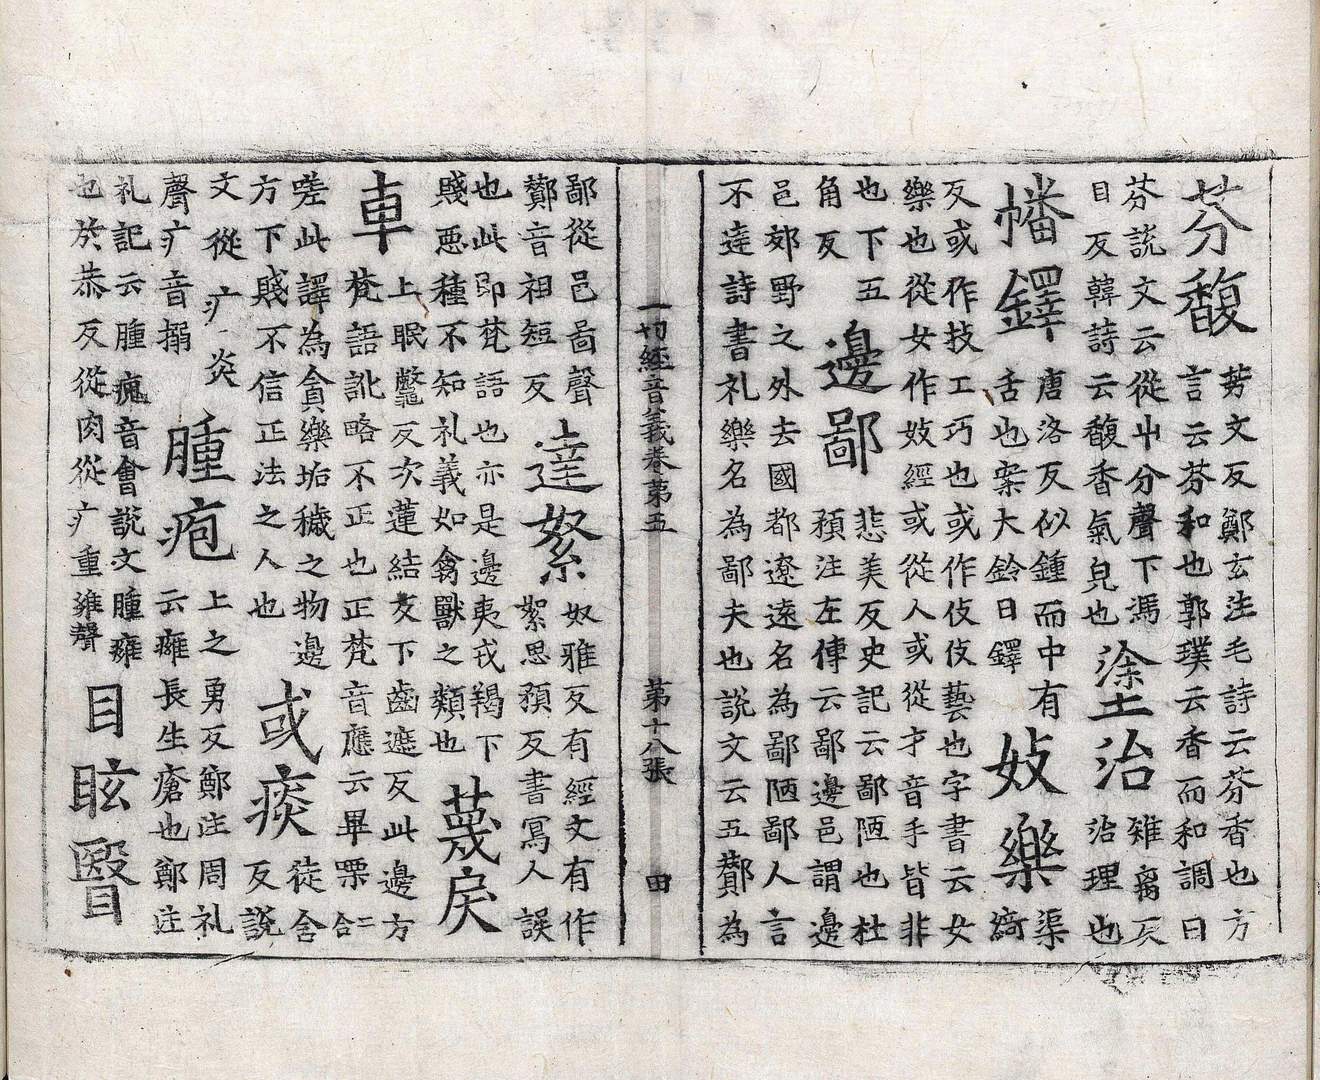 芬馥芳文反鄭玄注毛詩云芬香也方言云芬和也郭璞云香而和調曰
芬說文云從屮分聲下馮目反韓詩云馥香氣皃也塗治雉反治理也
幡鐸唐洛反似鍾而中有舌也案大鈴曰鐸妓樂渠綺
反或作技工巧也或作伎伎藝也字書云女樂也從女作妓經或從人或從才音手皆非
也下五角反邊鄙悲美反史記云鄙陋也杜預注左傳云鄙邊邑謂邊
邑郊野之外去國都遼遠名為鄙陋鄙人言不達詩書礼樂名為鄙夫也說文云五酇為
一切經音義卷第五 第十八張 田
鄙從邑啚聲酇音祖短反達絮奴雅反有經文有作絮思預反書寫人誤
也此即梵語也亦是邊夷戎羯下賤惡種不知礼義如禽獸之類也蔑戾
車上眠鼈反次蓮結反下齒遮反此邊方梵語訛略不正也正梵音應云畢㗚二合
嗟此譯為貪樂垢穢之物邊方下賤不信正法之人也或痰徒含反說
文從疒炎聲疒音搦腫疱上之勇反鄭注周礼云癰長生瘡也鄭注
礼記云腫瘣音會說文腫癰也於恭反從肉從疒重雍聲目眩瞖